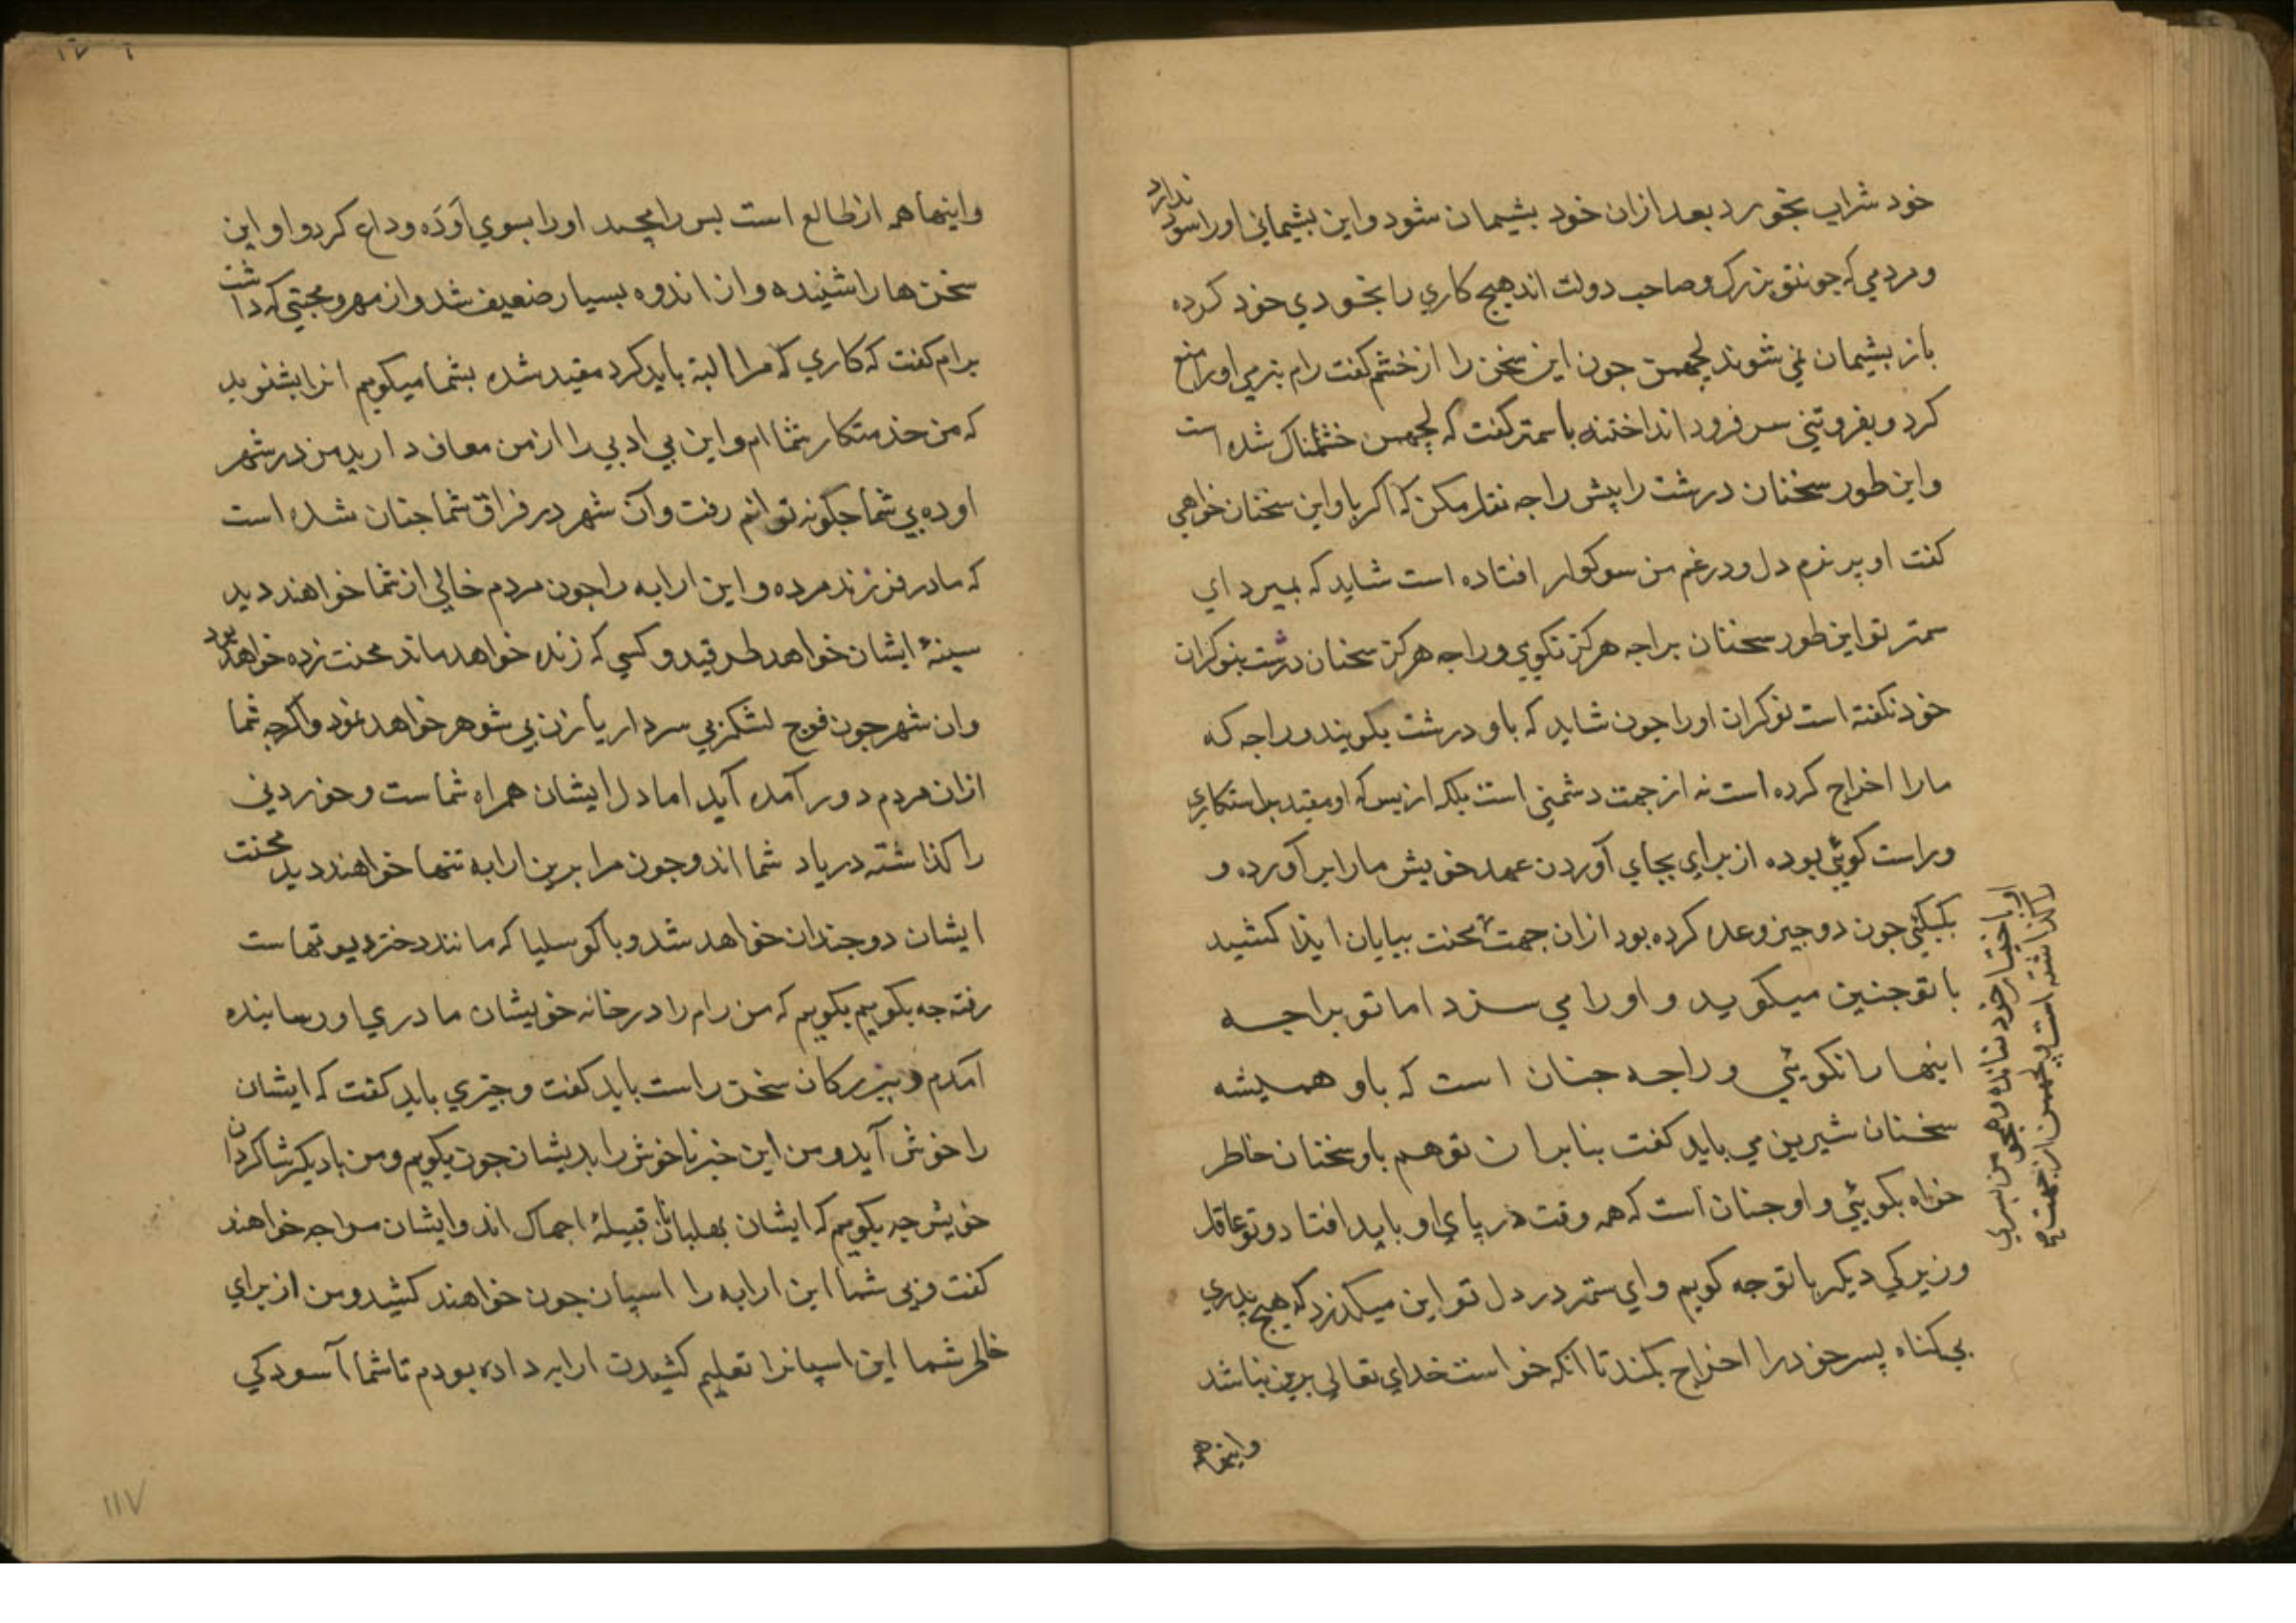 خود شراب بخورد بعد ازان خود بشیمان شود واین بشیمانی اورا سود ندارد
ومردمی که جونتو بزرک وصاحب دولت اند هیج کاري را بخودي خود کرده
باز بشیمان نمی شوند لجهمن جون این سخن را از خشم کفت رام بنرمی اورا منع
کرد و بفروتنی سر فرود انداختنه با سمتر کفت که لجهمن خشمناک شده است
واین طور سخنان درشت را پیش راجه نقل مکن که اکر باو این سخنان خواهی
کفت او پر نرم دل ودر غم من سوکوار افتاده است شاید که بمیرد اي
سمتر تو این طور سخنان براجه هرکز نکوي وراجه هرکز سخنان درشت بنوکران
خود نکفته است نوکران اورا جون شاید که باو درشت بکویند وراجه که
مارا اخراج کرده است نه از جهت دشمنی است بلکه از بس که او مقید براستکاري
وراست کوئي بوده از براي بجاي آوردن عهد خویش مارا بر آورده و
بکیکئي جون دو جیز وعده کرده بود ازان جهت محنت بیابان ایذا کشید
با تو جنین میکوید و اورا می سزد اما تو براجه
اینها را نکوئي و راجه جنان است که باو همیشه
سخنان شیرین می باید کفت بنابران تو هم باو سخنان خاطر
خواه بکوئي و او جنان است که همه وقت در پاي او باید افتاد وتو عاقل
وزیرکي دیکر با تو جه کویم و اي سمتر در دل تو این میکذرد که هیج پدري
بی کناه پسر خود را اخراج بکند تا آنکه خواست خداي تعالی برین نباشد
واینها همه
را کذاشته است ولجهمن از جهت
واینها همه از طالع است بس رامچند اورا بسوي اَوَدَه وداع کرد واو این
سخن ها را شنیده واز اندوه بسیار ضعیف شد واز مهر و محبتي که داشت
برام کفت که کاري که مرا البته باید کرد مقید شده بشما میکویم انرا بشنوید
که من خذمتکار شما ام و این بی ادبی را از من معاف دارید من در شهر
اوده بی شما جکونه توانم رفت و آن شهر در فراق شما جنان شده است
که مادر فرزند مرده و این ارابه را جون مردم خالی از شما خواهند دید
سینهٔ ایشان خواهد طرقید و کسي که زنده خواهد ماند محنت زده خواهد بود
وان شهر جون فوج لشکر بی سردار یا زن بی شوهر خواهد نمود واکرجه شما
ازان مردم دور آمده آید اما دل ایشان همراه شماست و خوردنی
را کذاشته در یاد شما اند وجون مرا برین ارابه تنها خواهند دید محنت
ایشان دو جندان خواهد شد و با کوسلیا که مانند دختر دیوتهاست
رفته جه بکویم بکویم که من رام را در خانه خویشان مادري او رسانیده
آمدم و ببزرکان سخن راست باید کفت و جیزي باید کفت که ایشان
را خوش آید ومن این خبر ناخوش را بدیشان جون بکویم ومن با دیکر شاکردان
خویش جه بکویم که ایشان بهلبانان قبیلهٔ اجماک اند وایشان مرا جه خواهند
کفت وبی شما این ارابه را اسپان جون خواهند کشید ومن از براي
خاطر شما این اسپانرا تعلیم کشیدن ارابه داده بودم تا شما آسودکي
۱۱۷